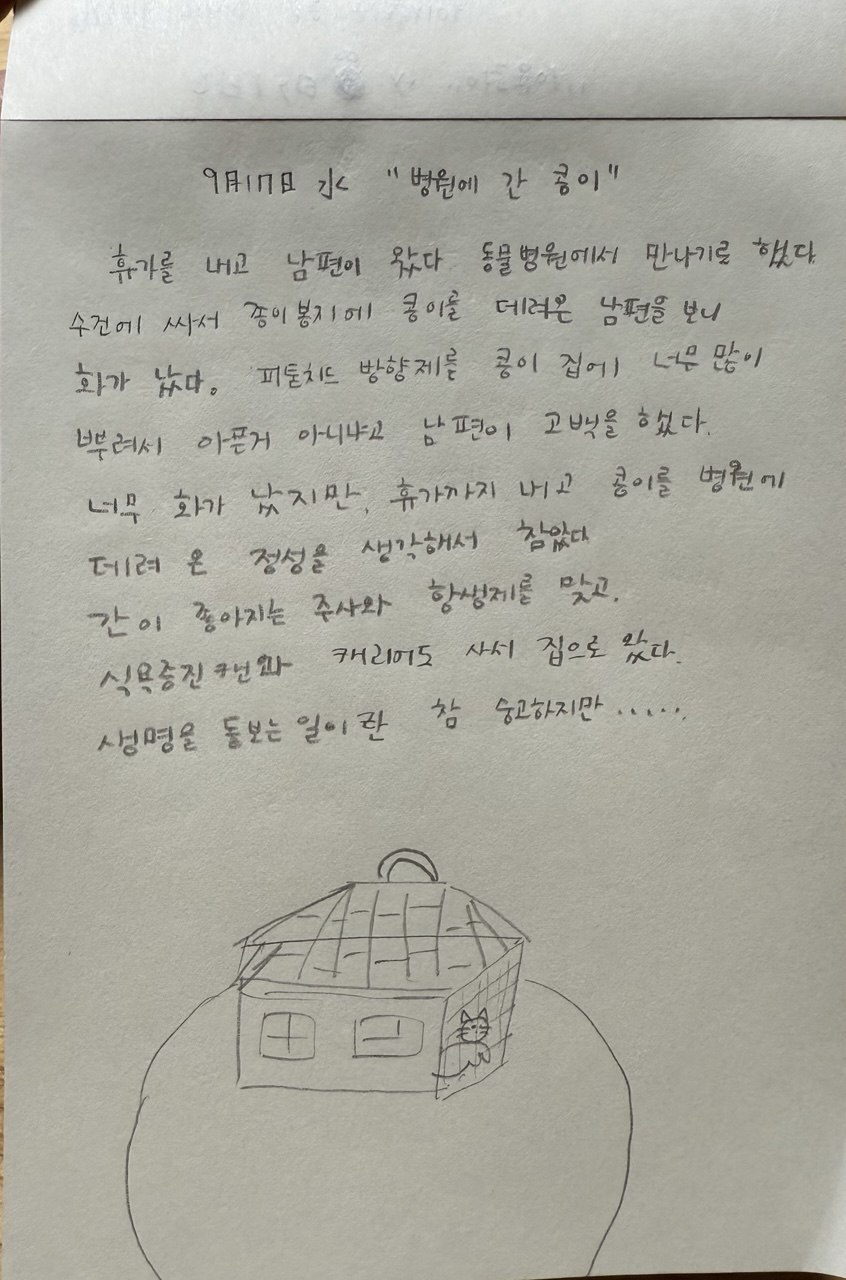 9月17日 水 "병원에 간 콩이"
휴가를 내고 남편이 왔다 동물병원에서 만나기로 했다.
수건에 싸서 종이봉지에 콩이를 데려온 남편을 보니
화가 났다. 피톤치드 방향제를 콩이 집에 너무 많이
뿌려서 아픈거 아니냐고 남편이 고백을 했다.
너무 화가 났지만, 휴가까지 내고 콩이를 병원에
데려 온 정성을 생각해서 참았다
간이 좋아지는 주사와 항생제를 맞고,
식욕증진캔와 캐리어도 사서 집으로 왔다.
생명을 돌보는 일이란 참 숭고하지만......